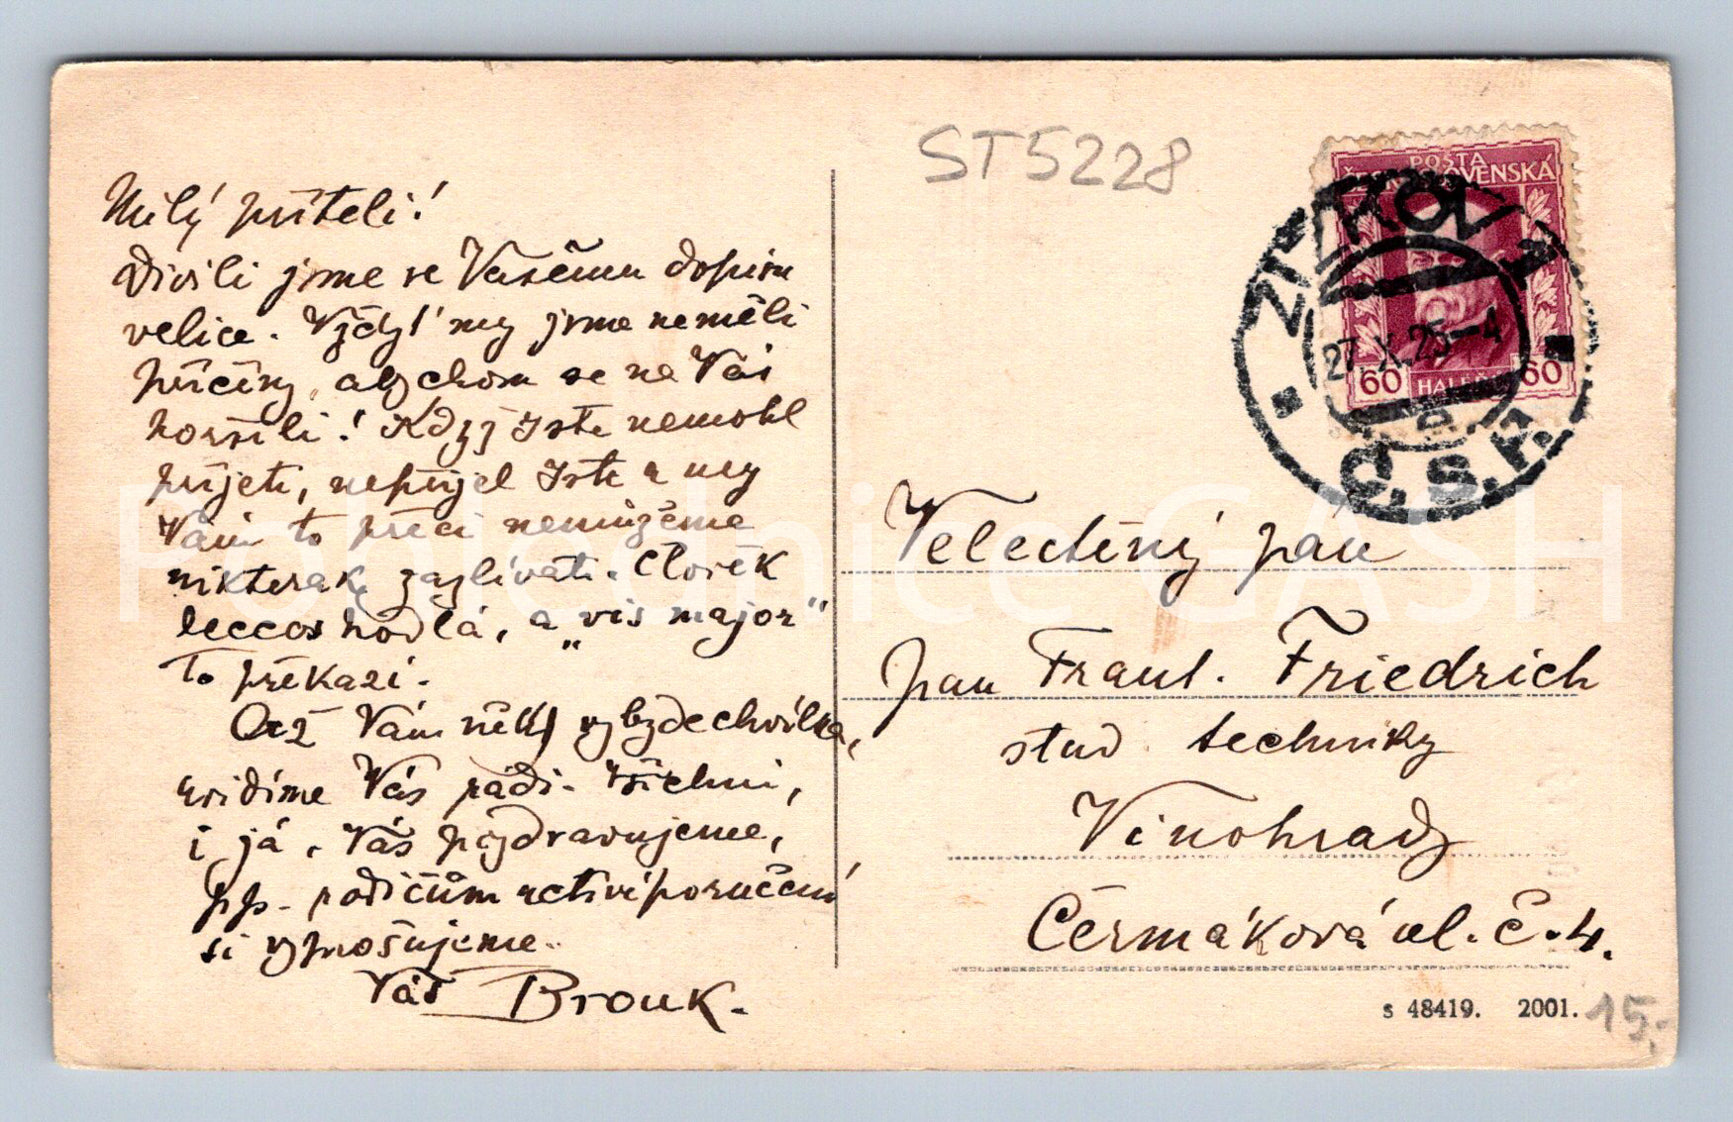 Milý příteli!
Divili jsme se Vašemu dopisu
velice. Vždyť my jsme neměli
příčiny, abychom se na Vás
horšili! Když jste nemohl
přijeti, nepřijel jste a my
Vám to přeci nemůžeme
nikterak zazlívati. Člověk
leccos hodlá, a „vis major“
to překazí.
Až Vám něk vybyde chvilka,
uvidíme Vás rádi. Všichni,
i já, Vás pozdravujeme,
pp. rodičům uctivé poručení
si vyprošujeme.
Váš Brouk.
ST5228
POŠTA
ČESKOSLOVENSKÁ
60 HALÉŘŮ 60
ŽIŽKOV 1
27.X.25-4
Č.S.R.
Velectěný pan
pan Frant. Friedrich
stud. techniky
Vinohrady
Čermáková ul. č. 4.
s 48419. 2001.
15,-
Pohlednice GASH